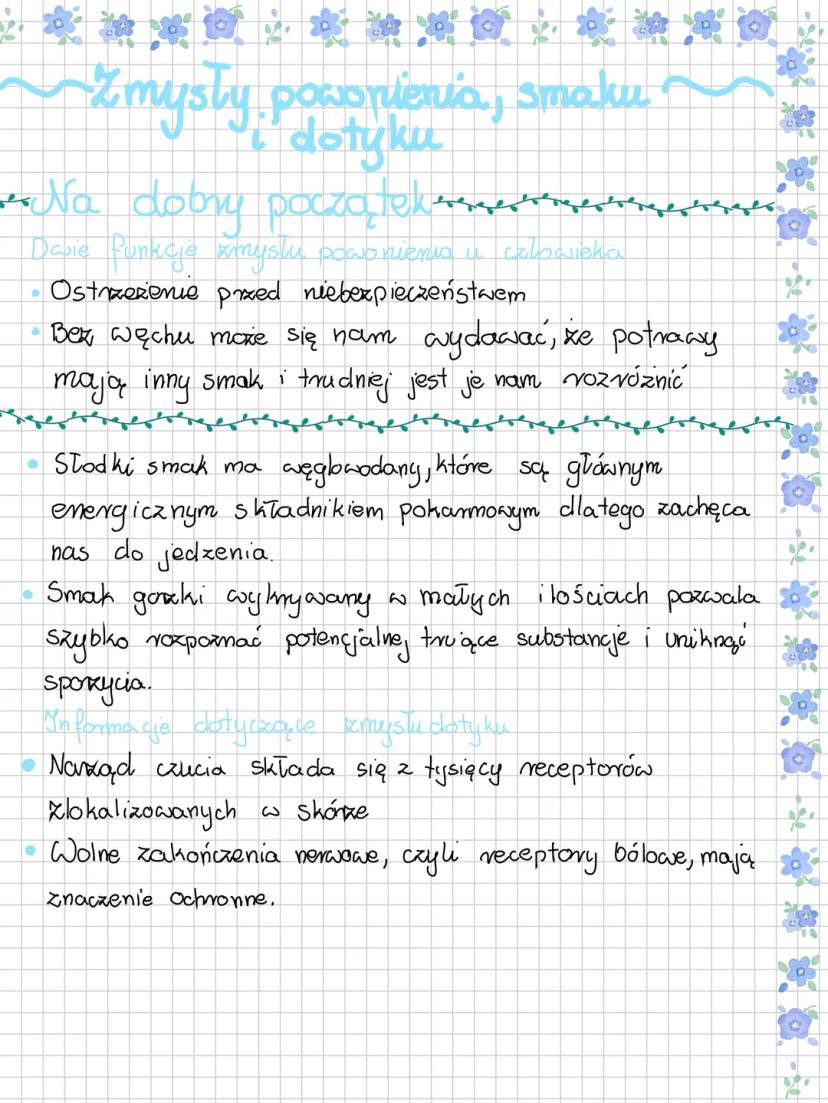 Zmysły powonienia, smaku
i dotyku
Na dobry początek
Dwie funkcje zmysłu powonienia u człowieka
Ostrzeżenie przed niebezpieczeństwem
Bez węchu może się nam wydawać, że potrawy
mają inny smak i trudniej jest je nam rozróżnić
Słodki smak ma węglowodany, które są głównym
energicznym składnikiem pokarmowym dlatego zachęca
nas do jedzenia.
Smak gorzki wykrywany w małych ilościach pozwala
szybko rozpoznać potencjalnej trujące substancje i uniknąć
spożycia.
Informacje dotyczące zmysłu dotyku
Narząd czucia składa się z tysięcy receptorów
zlokalizowanych w skórze
Wolne zakończenia nerwowe, czyli receptory bólowe, mają
znaczenie ochronne.